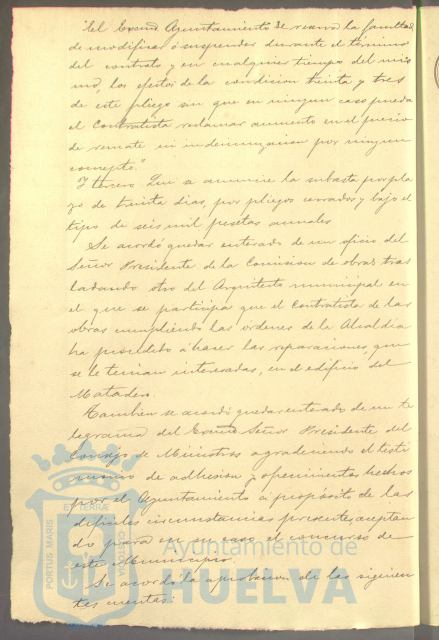 "El Excmo Ayuntamiento se reserva la facultad
de modificar ó suspender durante el término
del contrato y en cualquier tiempo del mis
mo, los efectos de la condicion treinta y tres
de este pliego sin que en ningun caso pueda
el Contratista reclamar aumento en el precio
de remate ni indemnizacion por ningun
concepto."
Y tercero Que se anuncie la subasta por pla
zo de treinta dias, por pliegos cerrados y bajo el
tipo de seis mil pesetas anuales
Se acordó quedar enterado de un oficio del
Señor Presidente de la Comision de obras tras
ladando otro del Arquitecto municipal en
el que se participa que el Contratista de las
obras cumpliendo las ordenes de la Alcaldia
ha procedido á hacer las reparaciones que
se le tenian interesadas, en el edificio del
Matadero.
Tambien se acordó quedar enterado de un te
legrama del Excmo Señor Presidente del
Consejo de Ministros agradeciendo el testi
monio de adhesion y ofrecimientos hechos
por el Ayuntamiento á propósito de las
difíciles circunstancias presentes, aceptan
do para en su caso el concurso de
este Municipio.
Se acordó la aprobacion de las siguien
tes cuentas:
PORTUS MARIS
ET TERRÆ
CUSTODIA
Ayuntamiento de
HUELVA